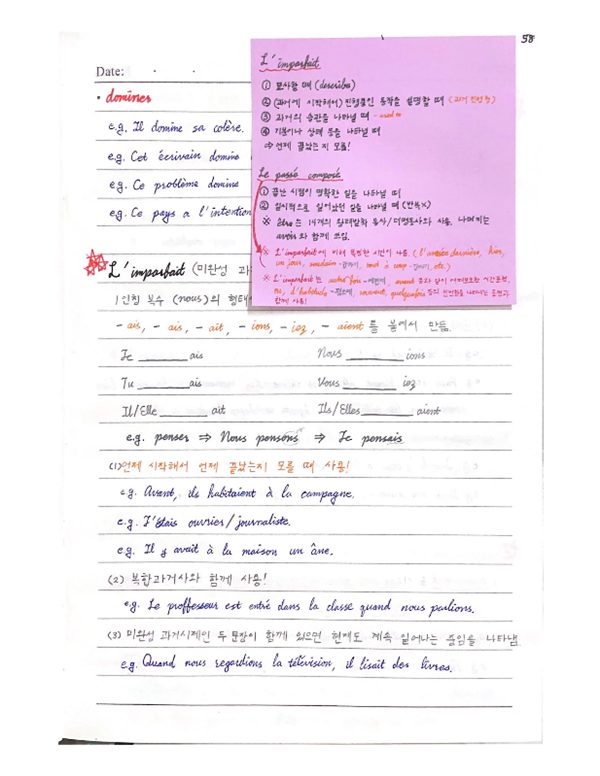 58
Date: . .
L'imparfait
① 묘사할 때 (describe)
② (과거에 시작해서) 진행중인 동작을 설명할 때 (과거 진행형)
③ 과거의 습관을 나타낼 때 - used to
④ 기분이나 상태 등을 나타낼 때
⇒ 언제 끝났는지 모름!
Le passé composé
① 끝난 시점이 명확한 일을 나타낼 때
② 일시적으로 일어났던 일을 나타낼 때 (반복X)
※ être는 14개의 왕래발착 동사/대명동사와 사용. 나머지는
avoir와 함께 쓰임.
※ L'imparfait에 비해 특정한 시간이 나옴. (l'année dernière, hier,
un jour, soudain-갑자기, tout à coup-갑자기, etc.)
※ L'imparfait는 autrefois-예전에, avant 등과 같이
d'habitude-평소에, souvent, quelquefois 등의
함께 사용!
• dominer
e.g. Il domine sa colère.
e.g. Cet écrivain domine
e.g. Ce problème domine
e.g. Ce pays a l'intention
L'imparfait (미완성 과
1인칭 복수 (nous)의 형태
- ais, - ais, - ait, - ions, - iez, - aient를 붙여서 만듦.
Je ais Nous ions
Tu ais Vous iez
Il/Elle ait Ils/Elles aient
e.g. penser ⇒ Nous pensons ⇒ Je pensais
(1) 언제 시작해서 언제 끝났는지 모를 때 사용!
e.g. Avant, ils habitaient à la campagne.
e.g. J'étais ouvrier/journaliste.
e.g. Il y avait à la maison un âne.
(2) 복합과거시와 함께 사용!
e.g. Le proffesseur est entré dans la classe quand nous parlions.
(3) 미완성 과거시제인 두 문장이 함께 있으면 현재도 계속 일어나는 중임을 나타냄
e.g. Quand nous regardions la télévision, il lisait des livres.